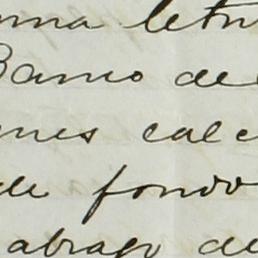 una letr
Banco de
nes calc
de fondo
abrazo de